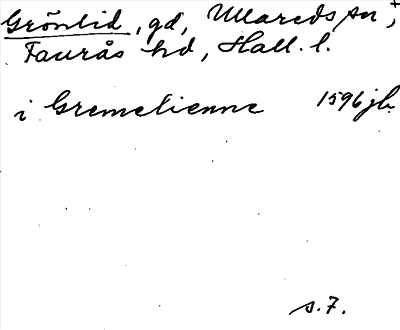 Grönlid, gd, Ullareds sn,
Faurås hd, Hall. l.
i Gremelienne 1596 jb.
s. 7.